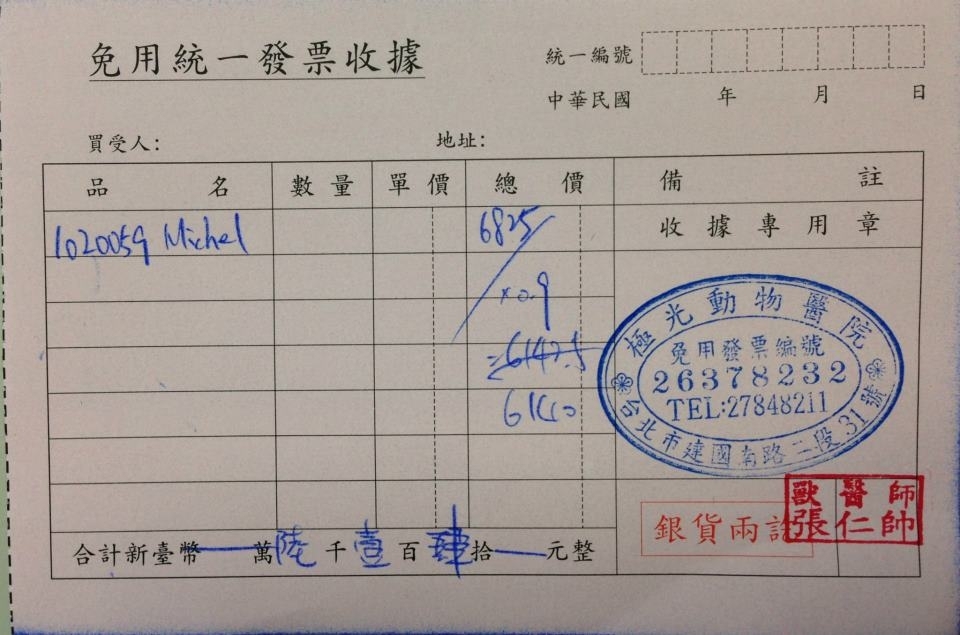 免用統一發票收據
統一編號
中華民國 年 月 日
買受人: 地址:
品名 數量 單價 總價 備註
1020059 Michel 6825 收據專用章
x0.9
=6142.5
6140
極光動物醫院
免用發票編號
26378232
TEL:27848211
台北市建國南路二段31號
獸醫師
張仁帥
銀貨兩訖
合計新臺幣 萬陸千壹百肆拾 元整